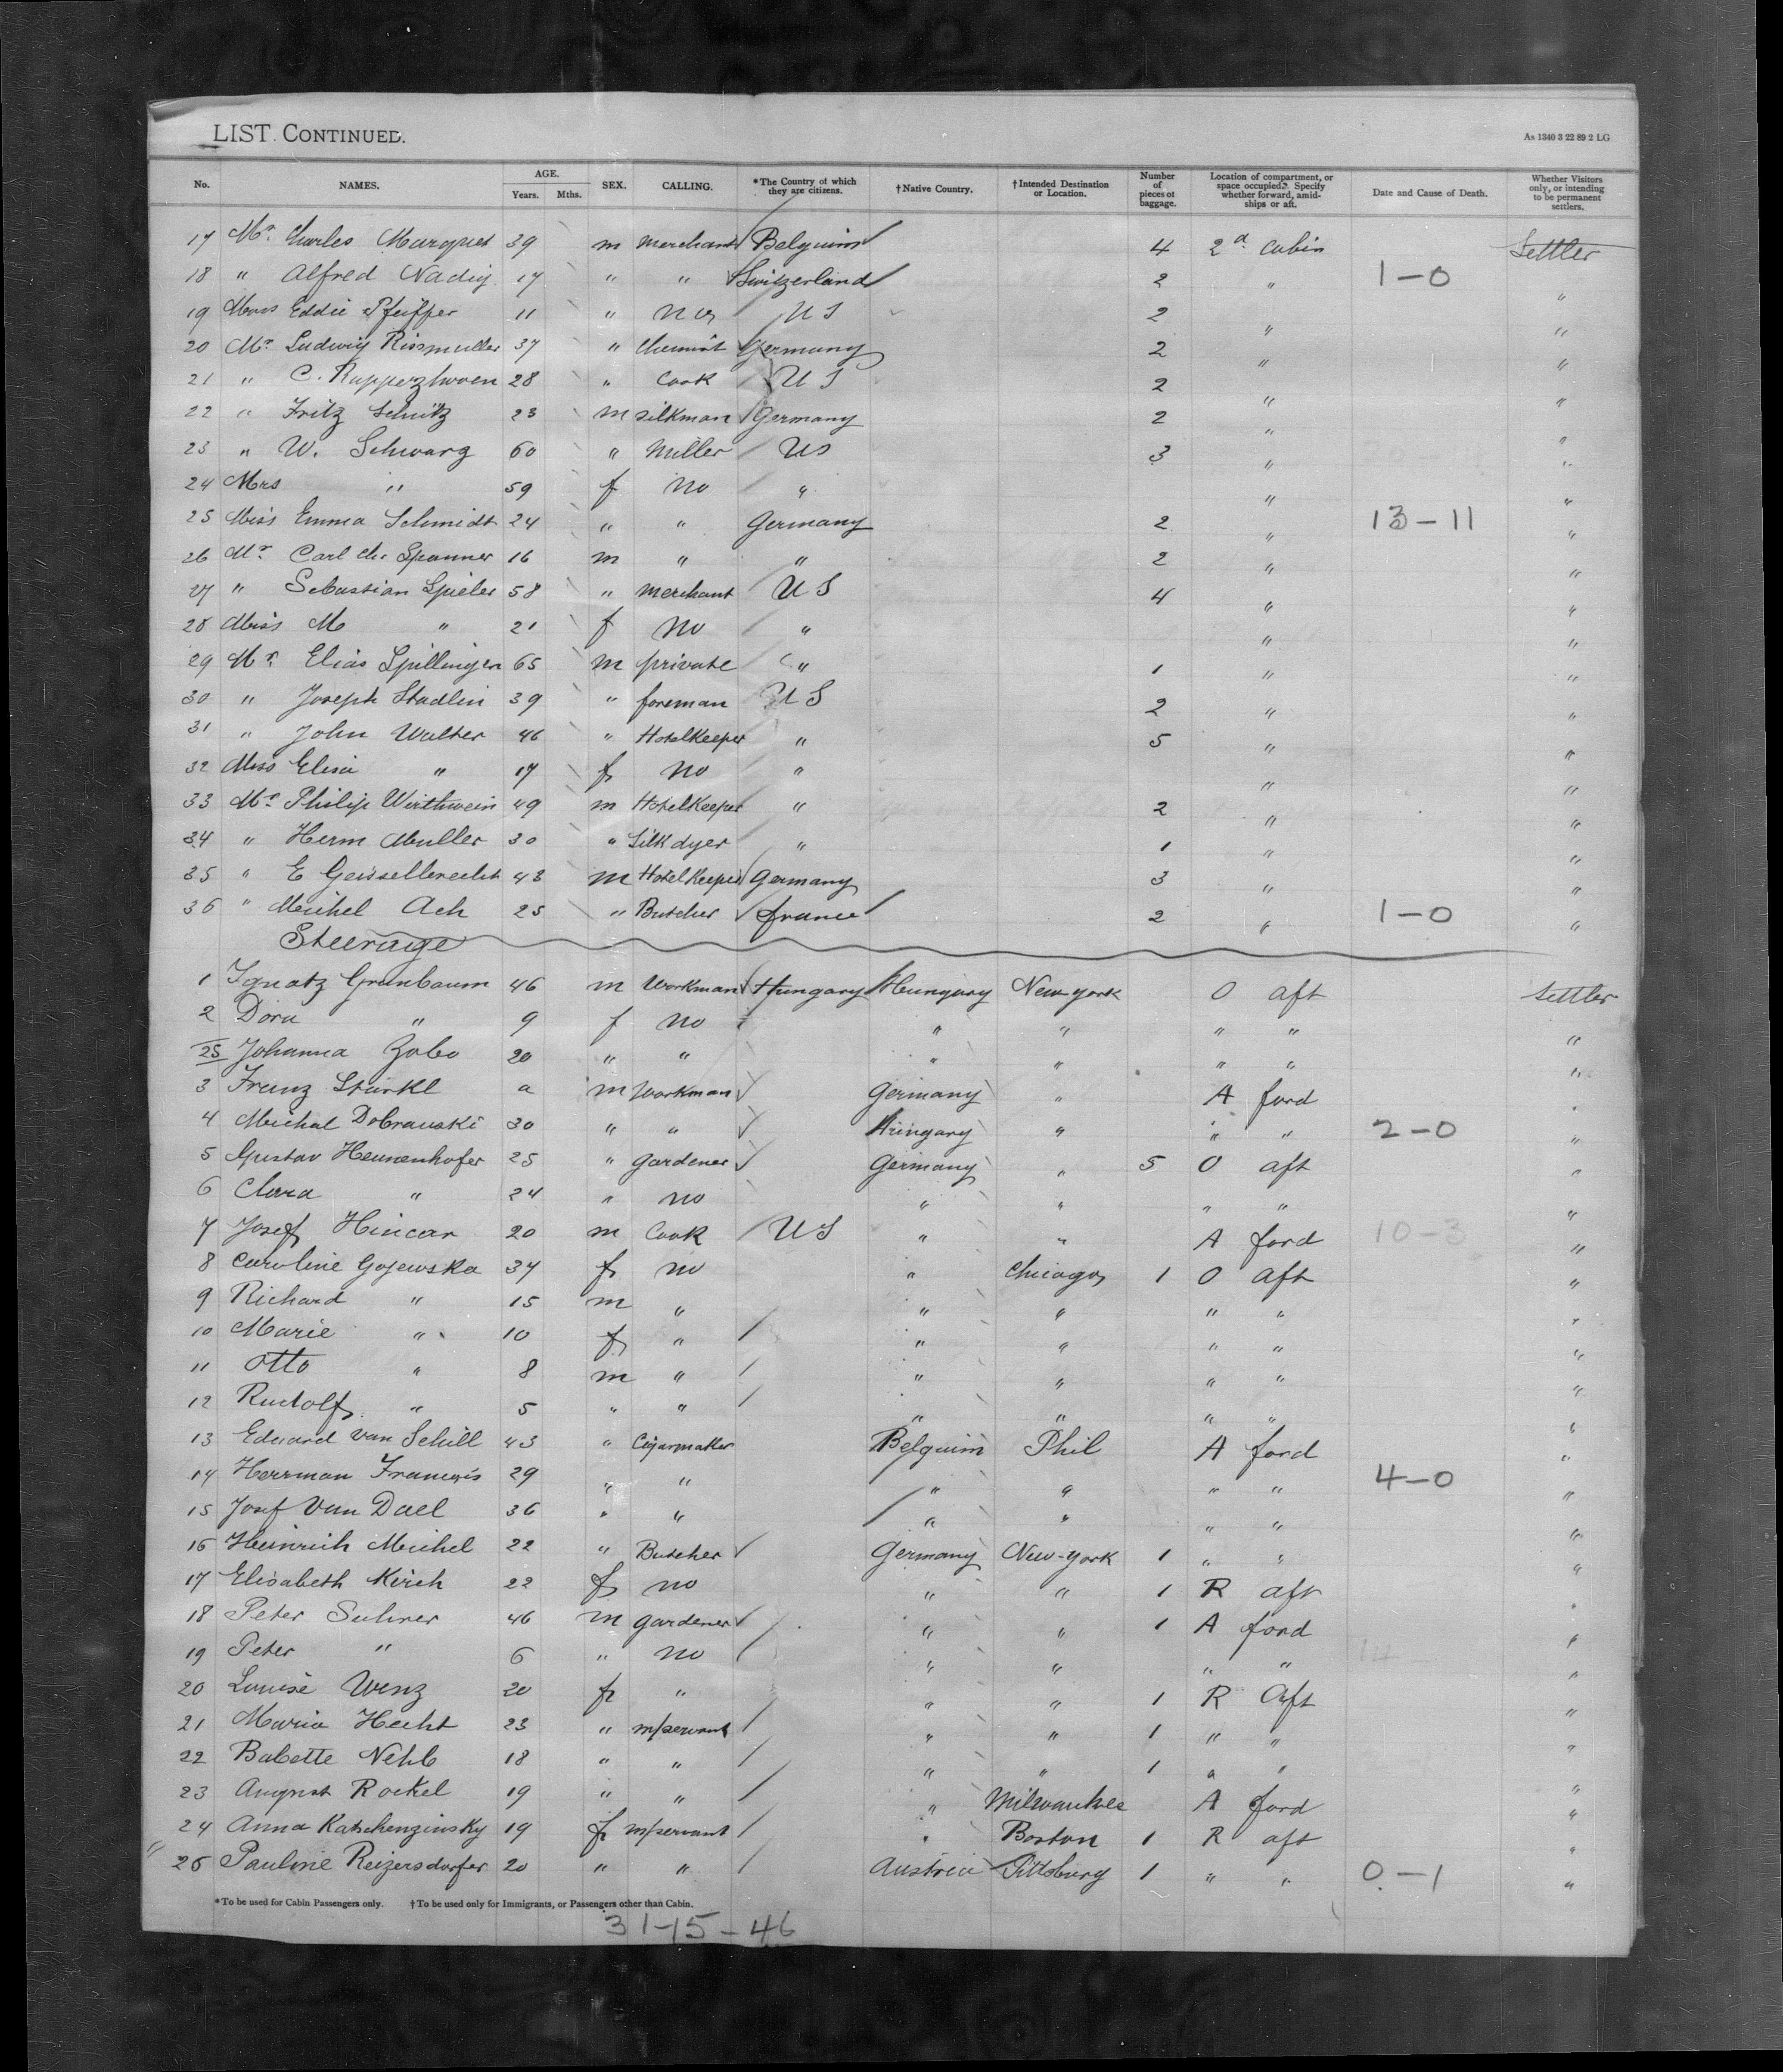 LIST CONTINUED.
As 1340 3 22 89 2 LG
No. NAMES. AGE. Years. Mths. SEX. CALLING. *The Country of which they are citizens. †Native Country. †Intended Destination or Location. Number of pieces of baggage. Location of compartment, or space occupied. Specify whether forward, amidships or aft. Date and Cause of Death. Whether Visitors only, or intending to be permanent settlers.
17 Mr. Charles Marquet 39 m merchant Belguim 4 2d Cabin Settler
18 " Alfred Nadig 17 " " Switzerland 2 " 1-0 "
19 Eddie Pfeiffer 11 " no U S 2 " "
20 Mr. Ludwig Rissmuller 37 " Chemist Germany 2 " "
21 " C. 28 " Cook U S 2 " "
22 " Fritz Schütz 23 m silkman Germany 2 " "
23 " W. Schwarz 60 " Miller US 3 " "
24 Mrs " 59 f no " " "
25 Miss Emma Schmidt 24 " " Germany 2 " 13-11 "
26 Mr. Carl Chr Spanner 16 m " " 2 " "
27 " Sebastian Spieler 58 " merchant U S 4 " "
28 Miss M " 21 f no " " "
29 Mr. Elias Spillinger 65 m private " 1 " "
30 " Joseph Stadlin 39 " foreman U S 2 " "
31 " John Walter 46 " Hotelkeeper " 5 " "
32 Miss Elisa " 17 f no " " "
33 Mr. Philip Wirthwein 49 m Hotelkeeper " 2 " "
34 " Herm Muller 30 " Silk dyer " 1 " "
35 " E Geissellbrecht 43 m Hotelkeeper Germany 3 " "
36 " Michel Ach 25 " Butcher france 2 " 1-0 "
Steerage
1 Ignatz Grünbaum 46 m Workman Hungary Hungary New york O aft Settler
2 Dora " 9 f no " " " " "
25 Johanna Zobo 20 " " " " " " "
3 Franz Stürkl a m Workman Germany " A ford "
4 Michal Dobranski 30 " " Hungary " " " 2-0 "
5 Gustav Hennenhofer 25 " gardener Germany " 5 O aft "
6 Clara " 24 " no " " " " "
7 Josef Hincar 20 m Cook U S " " A ford 10-3 "
8 Caroline Gojewska 34 f no " Chicago 1 O aft "
9 Richard " 15 m " " " " " "
10 Marie " 10 f " " " " " "
11 Otto " 8 m " " " " " "
12 Rudolf " 5 " " " " " " "
13 Eduard van Schill 43 " Cigarmaker Belguim Phil A ford "
14 Herrman François 29 " " " " " " 4-0 "
15 Josef Van Dael 36 " " " " " " "
16 Heinrich Michel 22 " Butcher Germany New-York 1 " " "
17 Elisabeth Kirch 22 f no " " 1 R aft "
18 Peter Suhrer 46 m gardener " " 1 A ford "
19 Peter " 6 " no " " " " "
20 Louise Wenz 20 f " " " 1 R Aft "
21 Maria Hecht 23 " m/servant " " 1 " " "
22 Babette Nehb 18 " " " " 1 " " "
23 August Rockel 19 " " " Milwaukee A ford "
24 Anna Katschenzinsky 19 f m/servant " Boston 1 R aft "
26 Pauline Reizersdorfer 20 " " Austria Pittsburg 1 " " 0-1 "
*To be used for Cabin Passengers only. †To be used only for Immigrants, or Passengers other than Cabin.
31-15-46